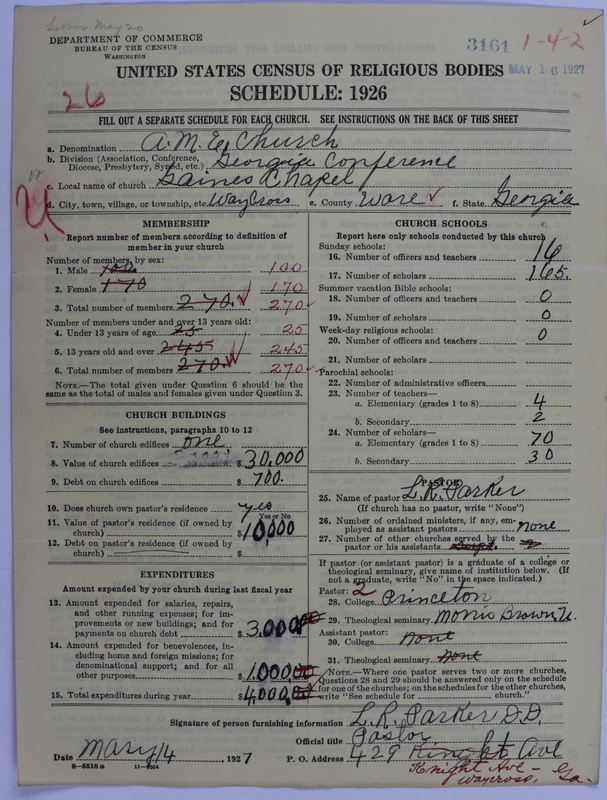 Letter May 20
DEPARTMENT OF COMMERCE
BUREAU OF THE CENSUS
WASHINGTON
3161 1-4-2
MAY 16 1927
UNITED STATES CENSUS OF RELIGIOUS BODIES
SCHEDULE: 1926
26
FILL OUT A SEPARATE SCHEDULE FOR EACH CHURCH. SEE INSTRUCTIONS ON THE BACK OF THIS SHEET
a. Denomination A.M.E. Church
b. Division (Association, Conference, Diocese, Presbytery, Synod, etc.) Georgia Conference
c. Local name of church Gaines Chapel
d. City, town, village, or township, etc. WayCross e. County Ware f. State Georgia
MEMBERSHIP
Report number of members according to definition of
member in your church
Number of members, by sex:
1. Male 100 100
2. Female 170 170
3. Total number of members 270. 270
Number of members under and over 13 years old:
4. Under 13 years of age 25 25
5. 13 years old and over 245 245
6. Total number of members 270. 270
NOTE.—The total given under Question 6 should be the
same as the total of males and females given under Question 3.
CHURCH BUILDINGS
See instructions, paragraphs 10 to 12
7. Number of church edifices one
8. Value of church edifices $30,000
9. Debt on church edifices $700.
10. Does church own pastor's residence yes
Yes or No
11. Value of pastor's residence (if owned by
church) $10,000
12. Debt on pastor's residence (if owned by
church) $
EXPENDITURES
Amount expended by your church during last fiscal year
13. Amount expended for salaries, repairs,
and other running expenses; for im-
provements or new buildings; and for
payments on church debt $3,000.00
14. Amount expended for benevolences, in-
cluding home and foreign missions; for
denominational support; and for all
other purposes $1,000.00
15. Total expenditures during year $4,000.00
CHURCH SCHOOLS
Report here only schools conducted by this church
Sunday schools:
16. Number of officers and teachers 16
17. Number of scholars 165.
Summer vacation Bible schools:
18. Number of officers and teachers 0
19. Number of scholars 0
Week-day religious schools:
20. Number of officers and teachers 0
21. Number of scholars
Parochial schools:
22. Number of administrative officers
23. Number of teachers—
a. Elementary (grades 1 to 8) 4
b. Secondary 2
24. Number of scholars—
a. Elementary (grades 1 to 8) 70
b. Secondary 30
PASTOR
25. Name of pastor L.R. Parker
(If church has no pastor, write "None")
26. Number of ordained ministers, if any, em-
ployed as assistant pastors none
27. Number of other churches served by the
pastor or his assistants
If pastor (or assistant pastor) is a graduate of a college or
theological seminary, give name of institution below. (If
not a graduate, write "No" in the space indicated.)
Pastor: 2
28. College Princeton
29. Theological seminary Morris Brown U.
Assistant pastor:
30. College None
31. Theological seminary None
NOTE.—Where one pastor serves two or more churches,
Questions 28 and 29 should be answered only on the schedule
for one of the churches; on the schedules for the other churches,
write "See schedule for church."
Signature of person furnishing information L.R. Parker D.D.
Official title Pastor
Date May 14 1927 P. O. Address 429 Kinght Ave
Knight Ave—
Waycross, Ga.
8-5518a 11-9564